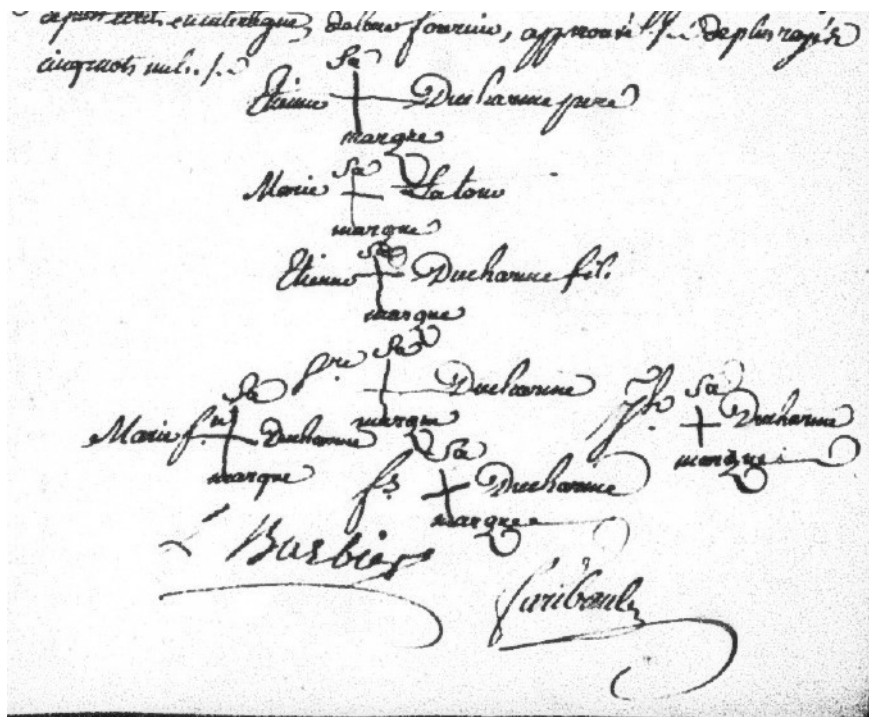 fournir, approuvé de plus rayés
cinq mots nuls
Sa
Etienne Ducharme pere
marque
Sa
Marie Latour
marque
Sa
Etienne Ducharme fils
marque
Sa
Ducharme
marque
Sa
Marie Ducharme
marque
Sa
Jh. Ducharme
marque
Sa
fs Ducharme
marque
Barbier
Faribault